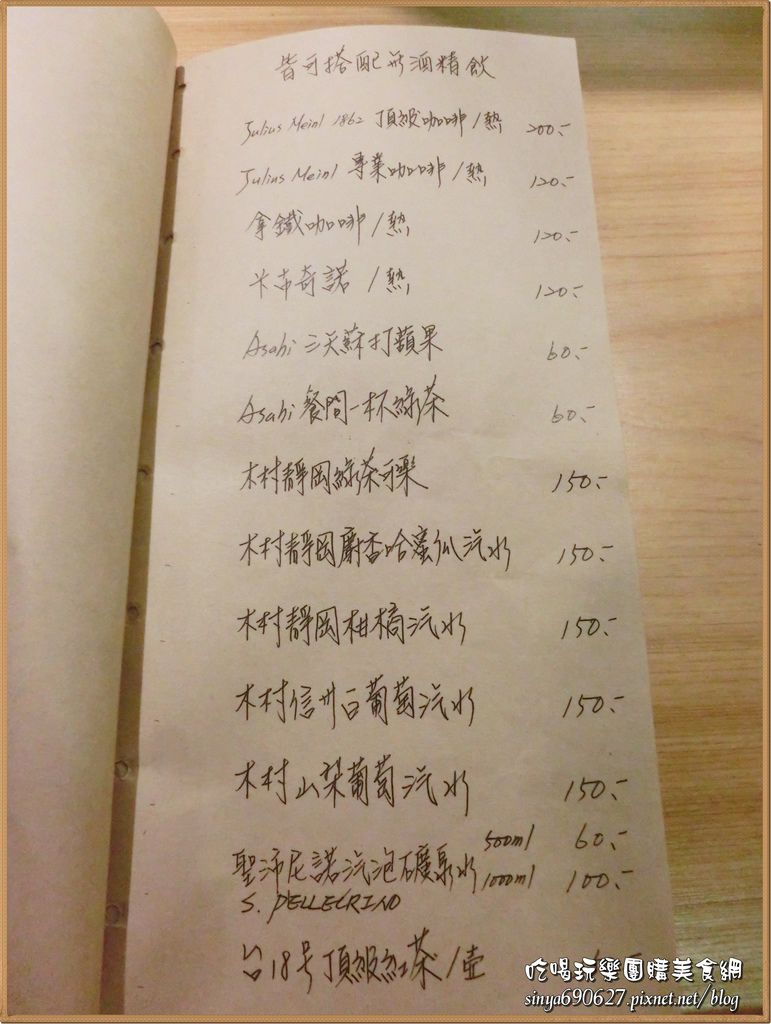 皆可搭配無酒精飲
Julius Meinl 1862 頂級咖啡/熱 200.-
Julius Meinl 專業咖啡/熱 120.-
拿鐵咖啡/熱 120.-
卡布奇諾/熱 120.-
Asahi 三矢蘇打蘋果 60.-
Asahi 餐間一杯綠茶 60.-
木村靜岡綠茶可樂 150.-
木村靜岡麝香哈蜜瓜汽水 150.-
木村靜岡柑橘汽水 150.-
木村信州白葡萄汽水 150.-
木村山梨葡萄汽水 150.-
500ml 60.-
聖沛尼諾汽泡礦泉水 1000ml 100.-
S. PELLEGRINO
台18号頂級紅茶/壺
吃喝玩樂團購美食網
sinya690627.pixnet.net/blog